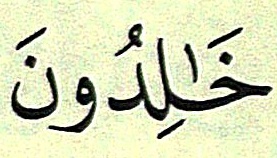 خَٰلِدُونَ